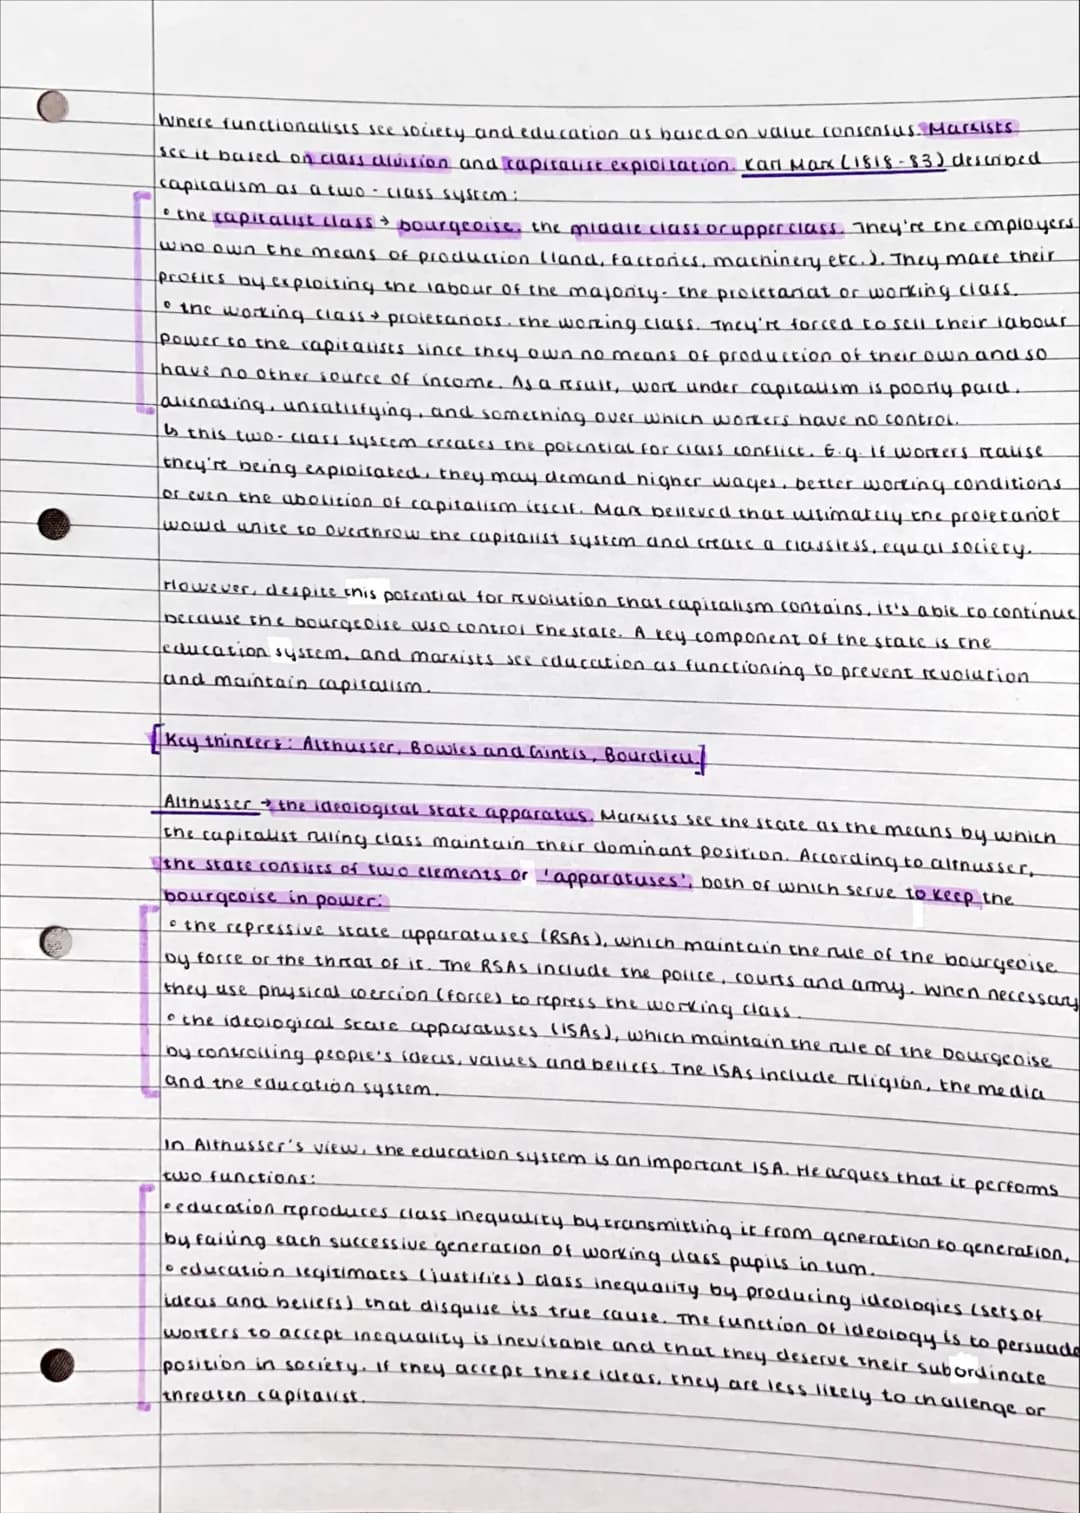 Where functionalists see society and education as based on value consensus. Marxists
see it based on class division and capitalist exploitation. Karl Marx (1818-83) described
capitalism as a two-class system:
• the capitalist class → bourgeoise, the middle class or upper class. They're the employers
who own the means of production (land, factories, machinery etc.). They make their
profits by exploiting the labour of the majority- the proletariat or working class.
• the working class → proletariots, the working class. They're forced to sell their labour
power to the capitalists since they own no means of production of their own and so
have no other source of income. As a result, work under capitalism is poorly paid,
alienating, unsatisfying, and something over which workers have no control.
↳ this two-class system creates the potential for class conflict. E.g. If workers realise
they're being exploitated, they may demand higher wages, better working conditions
or even the abolition of capitalism itself. Marx believed that ultimately the proletariot
would unite to overthrow the capitalist system and create a classless, equal society.
However, despite this potential for revolution that capitalism contains, it's able to continue
because the bourgeoise also control the state. A key component of the state is the
education system, and marxists see education as functioning to prevent revolution
and maintain capitalism.
[Key thinkers: Althusser, Bowles and Gintis, Bourdieu.]
Althusser → the ideological state apparatus. Marxists see the state as the means by which
the capitalist ruling class maintain their dominant position. According to althusser,
the state consists of two elements or 'apparatuses', both of which serve to keep the
bourgeoise in power:
• the repressive state apparatuses (RSAs), which maintain the rule of the bourgeoise
by force or the threat of it. The RSAs include the police, courts and army. When necessary
they use physical coercion (force) to repress the working class.
• the ideological state apparatuses (ISAs), which maintain the rule of the bourgeoise
by controlling people's ideas, values and beliefs. The ISAs include religion, the media
and the education system.
In Althusser's view, the education system is an important ISA. He argues that it performs
two functions:
• education reproduces class inequality by transmitting it from generation to generation,
by failing each successive generation of working class pupils in turn.
• education legitimates (justifies) class inequality by producing ideologies (sets of
ideas and beliefs) that disguise its true cause. The function of ideology is to persuade
workers to accept inequality is inevitable and that they deserve their subordinate
position in society. If they accept these ideas, they are less likely to challenge or
threaten capitalist.